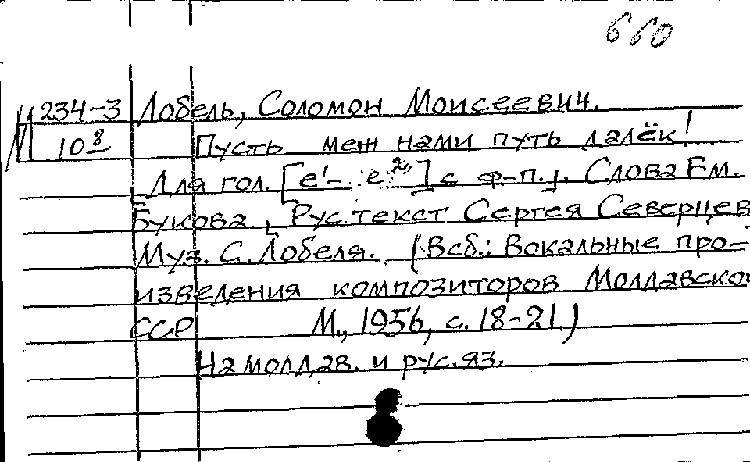 М 234-3 Лобель, Соломон Моисеевич.
10 8 Пусть меж нами путь далёк!
Для гол. [e¹- e²] с ф-п. Слова Ем.
Букова, Рус. текст Сергея Северцев
Муз. С. Лобеля. (В сб.: Вокальные про-
изведения композиторов Молдавско
ССР М., 1956, с. 18-21)
На молдав. и рус. яз.